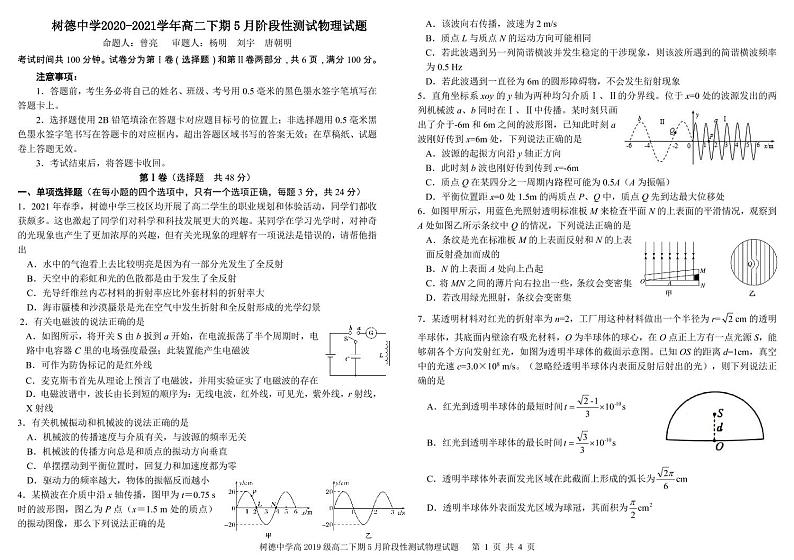 树德中学2020-2021学年高二下期5月阶段性测试物理试题
命题人：曾亮 审题人：杨明 刘宇 唐朝明
考试时间共100分钟。试卷分为第Ⅰ卷（选择题）和第Ⅱ卷两部分，共6页，满分100分。
注意事项：
1．答题前，考生务必将自己的姓名、班级、考号用0.5毫米的黑色墨水签字笔填写在
答题卡上。
2．选择题使用2B铅笔填涂在答题卡对应题目标号的位置上；非选择题用0.5毫米黑
色墨水签字笔书写在答题卡的对应框内，超出答题区域书写的答案无效；在草稿纸、试题
卷上答题无效。
3．考试结束后，将答题卡收回。
第Ⅰ卷（选择题 共48分）
一、单项选择题（在每小题的四个选项中，只有一个选项正确，每题3分，共24分）
1．2021年春季，树德中学三校区均开展了高二学生的职业规划和体验活动，同学们都收
获颇多。这也激起了同学们对科学和科技发展更大的兴趣。某同学在学习光学时，对神奇
的光现象也产生了更加浓厚的兴趣，但有关光现象的理解有一项说法是错误的，请帮他指
出
A．水中的气泡看上去比较明亮是因为有一部分光发生了全反射
B．天空中的彩虹和光的色散都是由于发生了全反射
C．光导纤维丝内芯材料的折射率应比外套材料的折射率大
D．海市蜃楼和沙漠蜃景是光在空气中发生折射和全反射形成的光学幻景
2．有关电磁波的说法正确的是
A．如图所示，将开关S由b扳到a开始，在电流振荡了半个周期时，电
路中电容器C里的电场强度最强；此装置能产生电磁波
B．可作为防伪标记的是红外线
C．麦克斯韦首先从理论上预言了电磁波，并用实验证实了电磁波的存在
D．电磁波谱中，波长由长到短的顺序为：无线电波，红外线，可见光，紫外线，r射线，
X射线
b a G
S
C L
3．有关机械振动和机械波的说法正确的是
A．机械波的传播速度与介质有关，与波源的频率无关
B．机械波的传播方向总是和质点的振动方向垂直
C．单摆摆动到平衡位置时，回复力和加速度都为零
D．驱动力的频率越大，物体的振幅反而越小
4．某横波在介质中沿x轴传播，图甲为t＝0.75 s
时的波形图，图乙为P点（x＝1.5 m处的质点）
的振动图像，那么下列说法正确的是
y/cm
20
P
L N
0 1 2 3 4 5 6 x/m
−20
甲
y/cm
20
0 1 2 3 t/s
−20
乙
A．该波向右传播，波速为2 m/s
B．质点L与质点N的运动方向可能相同
C．若此波遇到另一列简谐横波并发生稳定的干涉现象，则该波所遇到的简谐横波频率
为0.5 Hz
D．若此波遇到一直径为6m的圆形障碍物，不会发生衍射现象
5．直角坐标系xoy的y轴为两种均匀介质Ⅰ、Ⅱ的分界线。位于x=0处的波源发出的两
列机械波a、b同时在Ⅰ、Ⅱ中传播。某时刻只画
出了介于-6m和6m之间的波形图，已知此时刻a
波刚好传到x=6m处，下列说法正确的是
A．波源的起振方向沿y轴正方向
B．此时刻b波也刚好传到传到x=-6m
C．质点Q在某四分之一周期内路程可能为0.5A（A为振幅）
D．平衡位置距x=0处1.5m的两质点P、Q中，质点Q先到达最大位移处
b Ⅱ Q a Ⅰ P
-6 -4 -2 0 1 2 3 4 5 6 x/m
6．如图甲所示，用蓝色光照射透明标准板M来检查平面N的上表面的平滑情况，观察到
A处如图乙所示条纹中Q的情况，下列说法正确的是
A．条纹是光在标准板M的上表面反射和N的上表
面反射叠加而成的
B．N的上表面A处向上凸起
C．将MN之间的薄片向右拉出一些，条纹会变密集
D．若改用绿光照射，条纹会变密集
M
A N
甲
Q
乙
7．某透明材料对红光的折射率为n=2，工厂用这种材料做出一个半径为r=√2 cm的透明
半球体，其底面内壁涂有吸光材料，O为半球体的球心，在O点正上方有一点光源S，能
够朝各个方向发射红光，如图为透明半球体的截面示意图。已知OS的距离d=1cm，真空
中的光速c=3.0×10⁸ m/s。（忽略经透明半球体内表面反射后射出的光），则下列说法正
确的是
A．红光到透明半球体的最短时间t=(√2-1)/3×10⁻¹⁰s
B．红光到透明半球体的最长时间t=√3/3×10⁻¹⁰s
C．透明半球体外表面发光区域在此截面上形成的弧长为√2π/6 cm
D．透明半球体外表面发光区域为球冠，其面积为π/2 cm²
S
d
O
树德中学高2019级高二下期5月阶段性测试物理试题 第 1 页 共 4 页